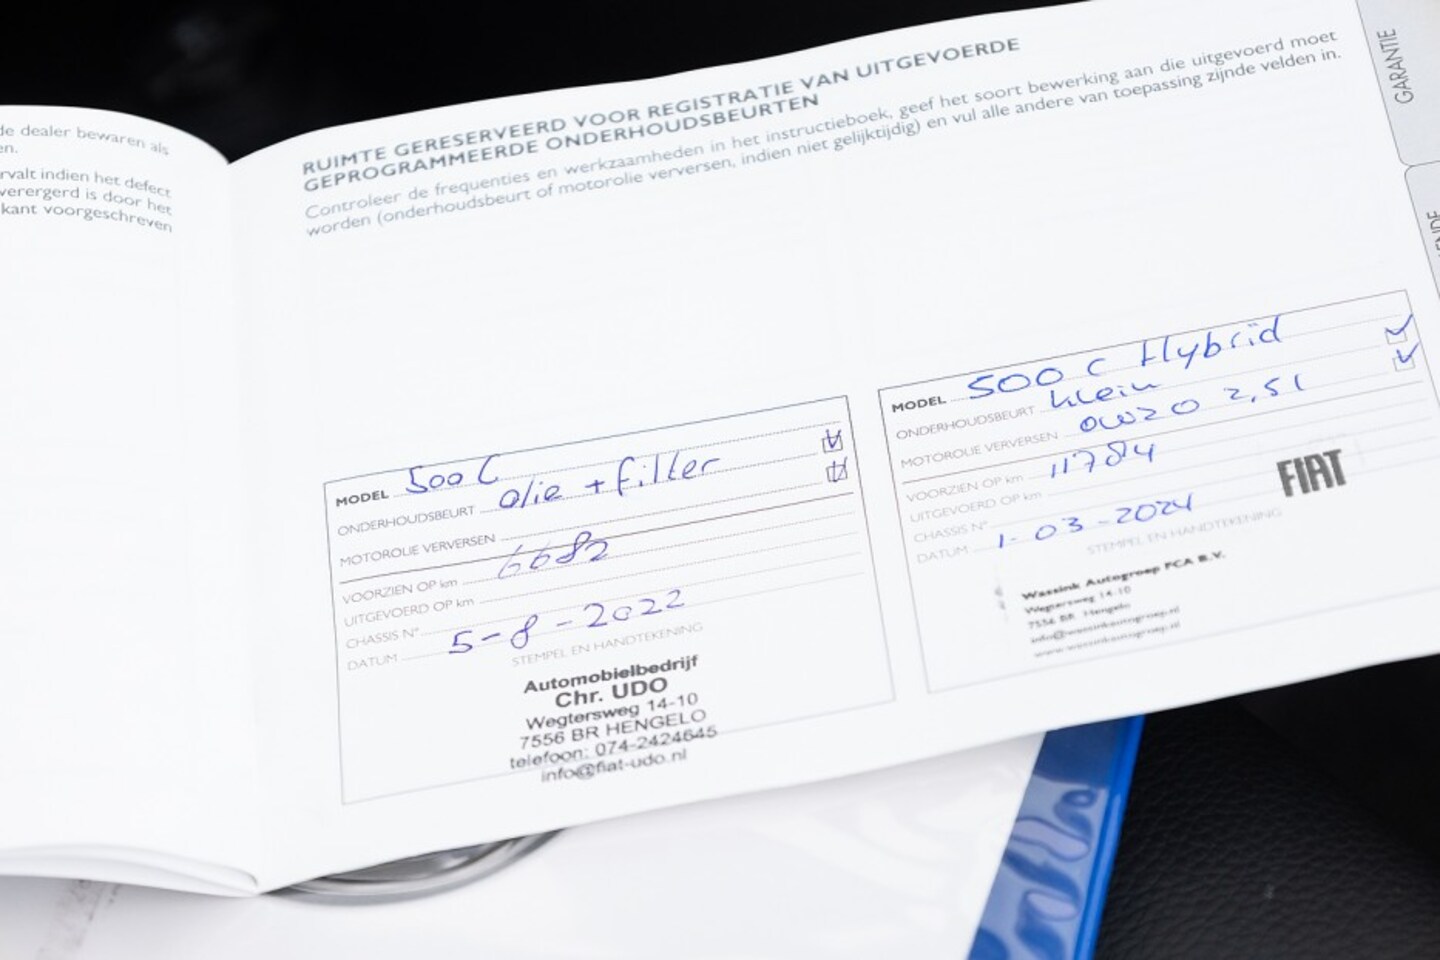 de dealer bewaren als
en.
rvalt indien het defect
verergerd is door het
kant voorgeschreven
RUIMTE GERESERVEERD VOOR REGISTRATIE VAN UITGEVOERDE
GEPROGRAMMEERDE ONDERHOUDSBEURTEN
Controleer de frequenties en werkzaamheden in het instructieboek, geef het soort bewerking aan die uitgevoerd moet
worden (onderhoudsbeurt of motorolie verversen, indien niet gelijktijdig) en vul alle andere van toepassing zijnde velden in.
MODEL 500 C
ONDERHOUDSBEURT olie + filter
MOTOROLIE VERVERSEN
VOORZIEN OP km 6682
UITGEVOERD OP km
CHASSIS N°
DATUM 5-8-2022
STEMPEL EN HANDTEKENING
Automobielbedrijf
Chr. UDO
Wegtersweg 14-10
7556 BR HENGELO
telefoon: 074-2424645
info@fiat-udo.nl
MODEL 500 C Hybrid
ONDERHOUDSBEURT klein
MOTOROLIE VERVERSEN 0W20 2,5 l
VOORZIEN OP km 11784
UITGEVOERD OP km
CHASSIS N°
DATUM 1-03-2024
STEMPEL EN HANDTEKENING
FIAT
Wassink Autogroep FCA B.V.
Wegtersweg 14-10
7556 BR Hengelo
info@wassinkautogroep.nl
www.wassinkautogroep.nl
GARANTIE